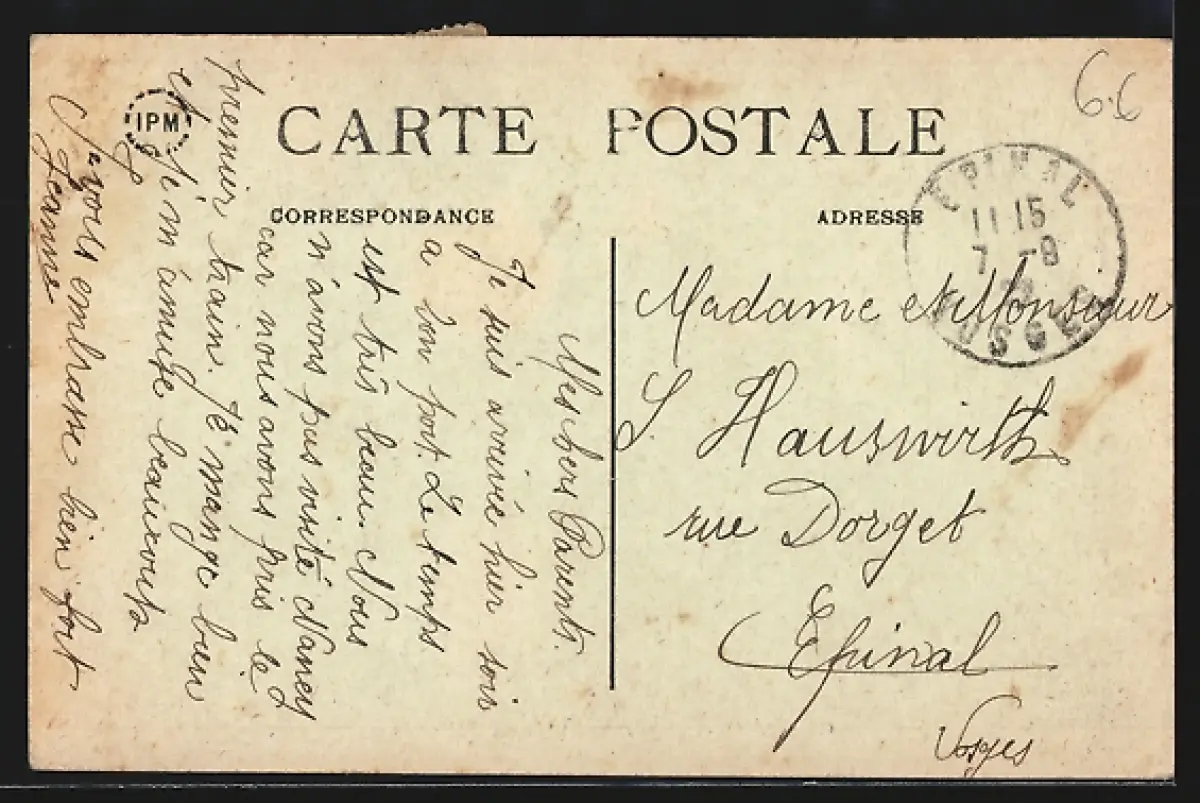 CARTE POSTALE
CORRESPONDANCE
ADRESSE
IPM
6.6
EPINAL
11 15
7 -8
VOSGES
Mes chers Parents.
Je suis arrivée hier soir
a bon port. Le temps
est très beau. Nous
n'avons pas visité Nancy
car nous avons pris le
premier train. Je mange bien
et je m'amuse beaucoup
Je vous embrasse bien fort.
Jeanne
Madame et Monsieur
S. Hauswirth
rue Dorget
Epinal
Vosges